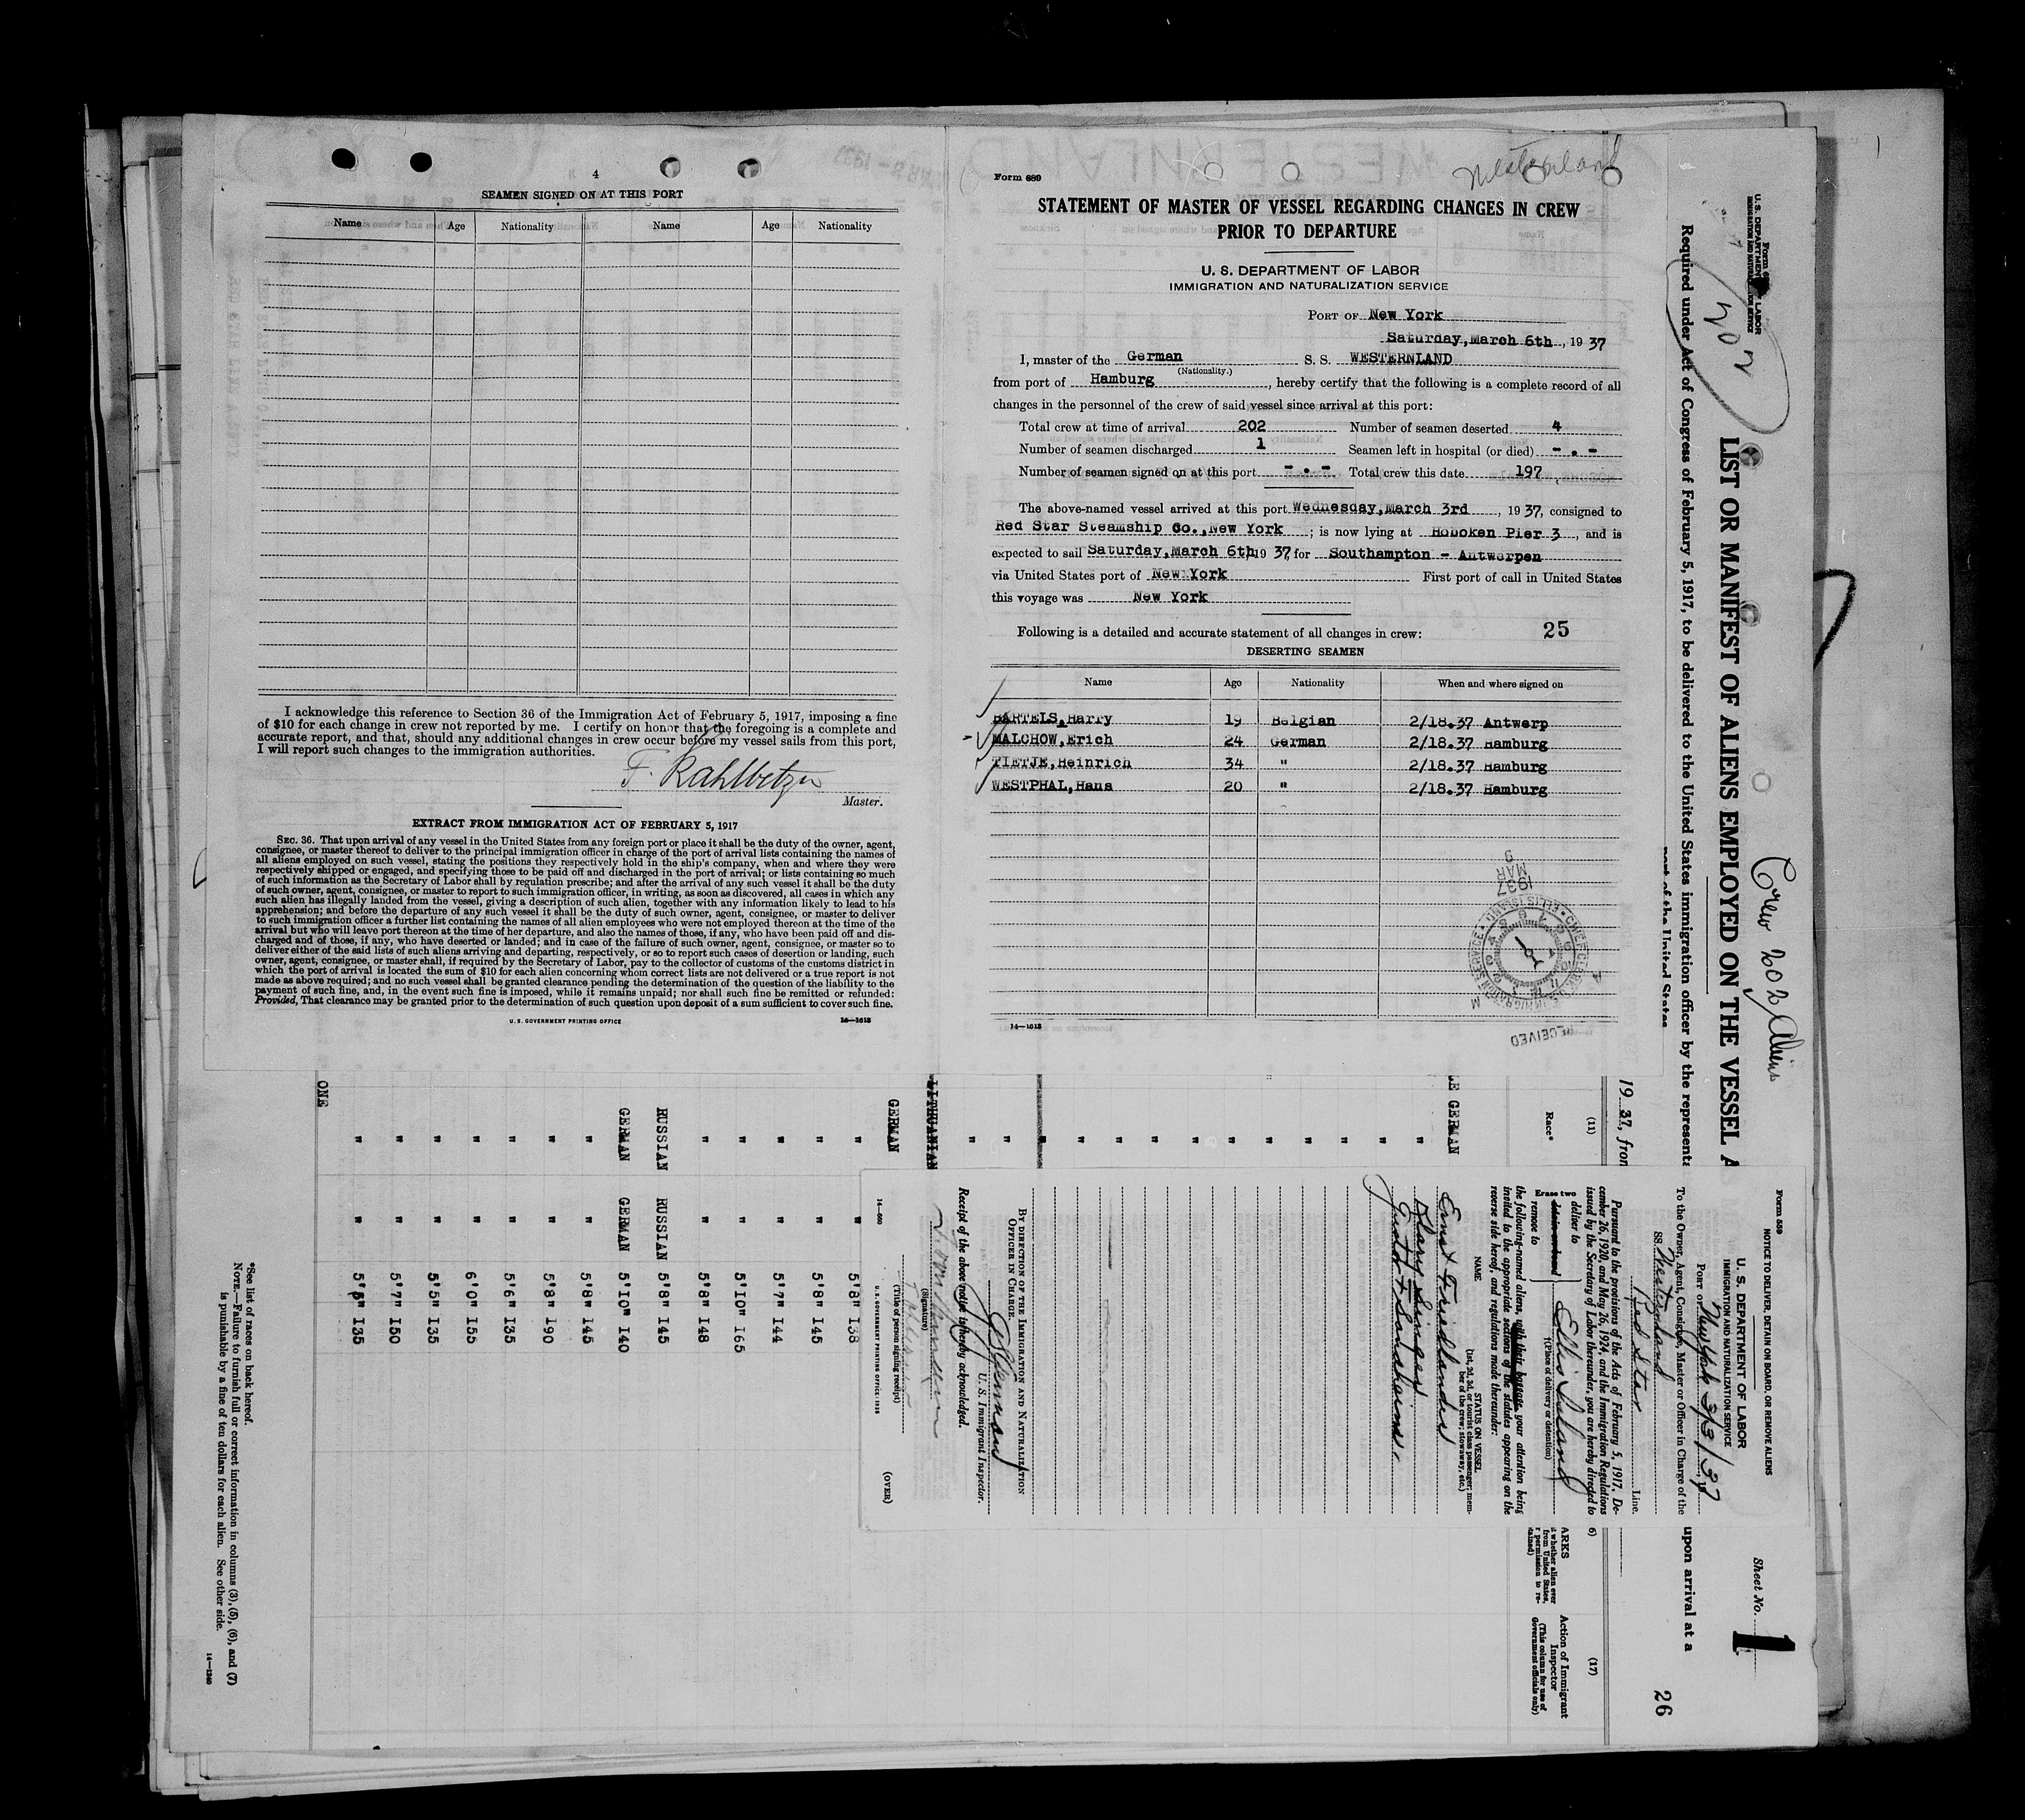 4
SEAMEN SIGNED ON AT THIS PORT
Name Age Nationality Name Age Nationality
I acknowledge this reference to Section 36 of the Immigration Act of February 5, 1917, imposing a fine
of $10 for each change in crew not reported by me. I certify on honor that the foregoing is a complete and
accurate report, and that, should any additional changes in crew occur before my vessel sails from this port,
I will report such changes to the immigration authorities.
F. Rahlwetzer
Master.
EXTRACT FROM IMMIGRATION ACT OF FEBRUARY 5, 1917
SEC. 36. That upon arrival of any vessel in the United States from any foreign port or place it shall be the duty of the owner, agent,
consignee, or master thereof to deliver to the principal immigration officer in charge of the port of arrival lists containing the names of
all aliens employed on such vessel, stating the positions they respectively hold in the ship's company, when and where they were
respectively shipped or engaged, and specifying those to be paid off and discharged in the port of arrival; or lists containing so much
of such information as the Secretary of Labor shall by regulation prescribe; and after the arrival of any such vessel it shall be the duty
of such owner, agent, consignee, or master to report to such immigration officer, in writing, as soon as discovered, all cases in which any
such alien has illegally landed from the vessel, giving a description of such alien, together with any information likely to lead to his
apprehension; and before the departure of any such vessel it shall be the duty of such owner, agent, consignee, or master to deliver
to such immigration officer a further list containing the names of all alien employees who were not employed thereon at the time of the
arrival but who will leave port thereon at the time of her departure, and also the names of those, if any, who have been paid off and dis-
charged and of those, if any, who have deserted or landed; and in case of the failure of such owner, agent, consignee, or master so to
deliver either of the said lists of such aliens arriving and departing, respectively, or so to report such cases of desertion or landing, such
owner, agent, consignee, or master shall, if required by the Secretary of Labor, pay to the collector of customs of the customs district in
which the port of arrival is located the sum of $10 for each alien concerning whom correct lists are not delivered or a true report is not
made as above required; and no such vessel shall be granted clearance pending the determination of the question of the liability to the
payment of such fine, and, in the event such fine is imposed, while it remains unpaid; nor shall such fine be remitted or refunded:
Provided, That clearance may be granted prior to the determination of such question upon deposit of a sum sufficient to cover such fine.
U. S. GOVERNMENT PRINTING OFFICE 14—1613
Form 689
Westernland
STATEMENT OF MASTER OF VESSEL REGARDING CHANGES IN CREW
PRIOR TO DEPARTURE
U. S. DEPARTMENT OF LABOR
IMMIGRATION AND NATURALIZATION SERVICE
PORT OF New York
Saturday, March 6th, 19 37
I, master of the German S. S. WESTERNLAND
(Nationality.)
from port of Hamburg, hereby certify that the following is a complete record of all
changes in the personnel of the crew of said vessel since arrival at this port:
Total crew at time of arrival 202 Number of seamen deserted 4
Number of seamen discharged 1 Seamen left in hospital (or died) - . -
Number of seamen signed on at this port - . - Total crew this date 197
The above-named vessel arrived at this port Wednesday, March 3rd, 19 37, consigned to
Red Star Steamship Co., New York; is now lying at Hoboken Pier 3, and is
expected to sail Saturday, March 6th, 19 37, for Southampton - Antwerpen
via United States port of New York First port of call in United States
this voyage was New York
Following is a detailed and accurate statement of all changes in crew: 25
DESERTING SEAMEN
Name Age Nationality When and where signed on
BARTELS, Harry 19 Belgian 2/18.37 Antwerp
MALCHOW, Erich 24 German 2/18.37 Hamburg
TIETJE, Heinrich 34 " 2/18.37 Hamburg
WESTPHAL, Hans 20 " 2/18.37 Hamburg
1937 MAR 9
RECEIVED
14—1613
Form 6
U. S. DEPARTMENT OF LABOR
IMMIGRATION AND NATURALIZATION SERVICE
202
Crew 202 Aliens
LIST OR MANIFEST OF ALIENS EMPLOYED ON THE VESSEL A
Required under Act of Congress of February 5, 1917, to be delivered to the United States immigration officer by the representa
upon arrival at a
port of the United States
Sheet No. 1
26
19 37, from
(11)
Race*
6)
ARKS
(17)
Action of Immigrant
Inspector
(This column for use of
Government officials only)
LE GERMAN
LITHUANIAN
GERMAN
" " 5'8" 138
" " 5'8" 145
" " 5'7" 144
" " 5'10" 165
" " 5'8" 148
RUSSIAN RUSSIAN 5'8" 145
GERMAN GERMAN 5'10" 140
" " 5'8" 145
" " 5'8" 190
" " 5'6" 135
" " 6'0" 155
" " 5'5" 135
" " 5'7" 150
" " 5'6" 135
ONE
*See list of races on back hereof.
NOTE.—Failure to furnish full or correct information in columns (3), (5), (6), and (7)
is punishable by a fine of ten dollars for each alien. See other side.
14—1240
Form 559
NOTICE TO DELIVER, DETAIN ON BOARD, OR REMOVE ALIENS
U. S. DEPARTMENT OF LABOR
IMMIGRATION AND NATURALIZATION SERVICE
PORT OF New York 3/3/37
To the Owner, Agent, Consignee, Master or Officer in Charge of the
SS. Westernland
Red Star Line.
Pursuant to the provisions of the Acts of February 5, 1917, De-
cember 26, 1920, and May 26, 1924, and the Immigration Regulations
issued by the Secretary of Labor thereunder, you are hereby directed to
Erase two
deliver to
detain on board
remove to
Ellis Island
(Place of delivery or detention)
the following-named aliens, with their baggage, your attention being
invited to the appropriate sections of the statutes appearing on the
reverse side hereof, and regulations made thereunder:
NAME
STATUS ON VESSEL
(1st, 2d, 3d, or tourist class passenger; mem-
ber of the crew; stowaway, etc.)
Ernst Friedlander
Mary Singer
BY DIRECTION OF THE IMMIGRATION AND NATURALIZATION
OFFICER IN CHARGE.
U. S. Immigrant Inspector.
Receipt of the above notice is hereby acknowledged.
(Signature)
(Title of person signing receipt)
14—660 U. S. GOVERNMENT PRINTING OFFICE: 1935 (OVER)